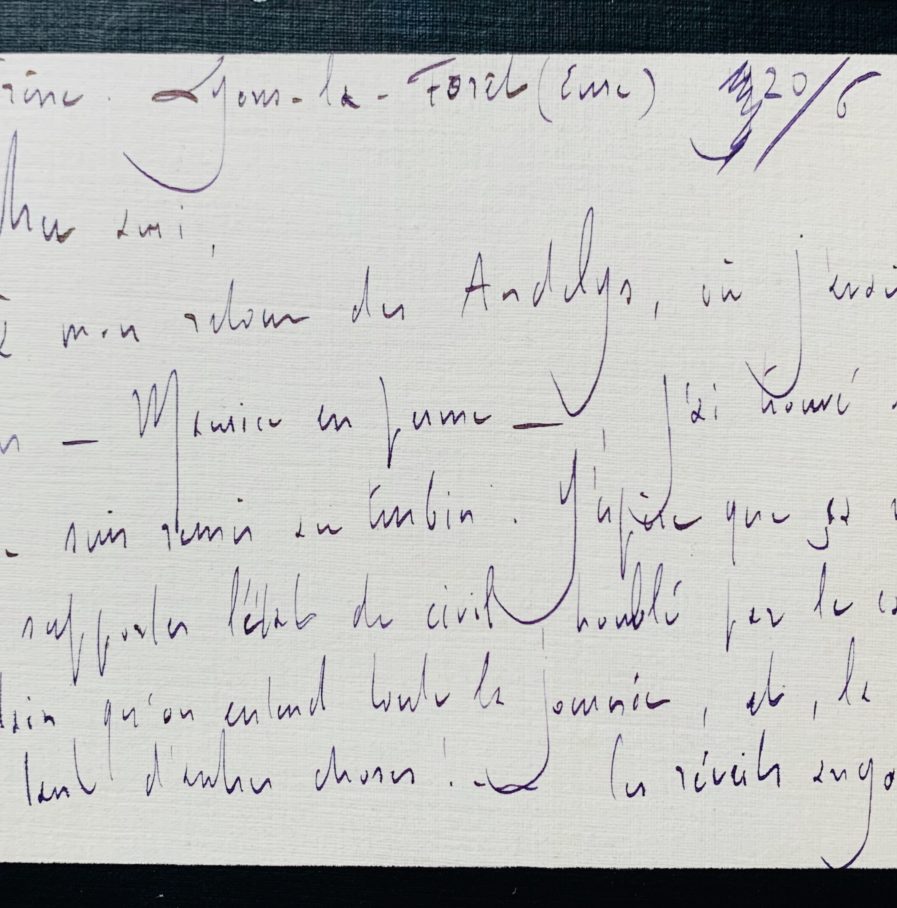 Lyons-la-Foret (Eure) 20/6
Cher ami,
À mon retour des Andelys, où j'avai
– Maurice en forme –, j'ai trouvé
suis remis au turbin. J'espère que ça
supporter l'état de civil, troublé par le ca
qu'on entend toute la journée, et, la
tant d'autres choses! – Les réveils ango